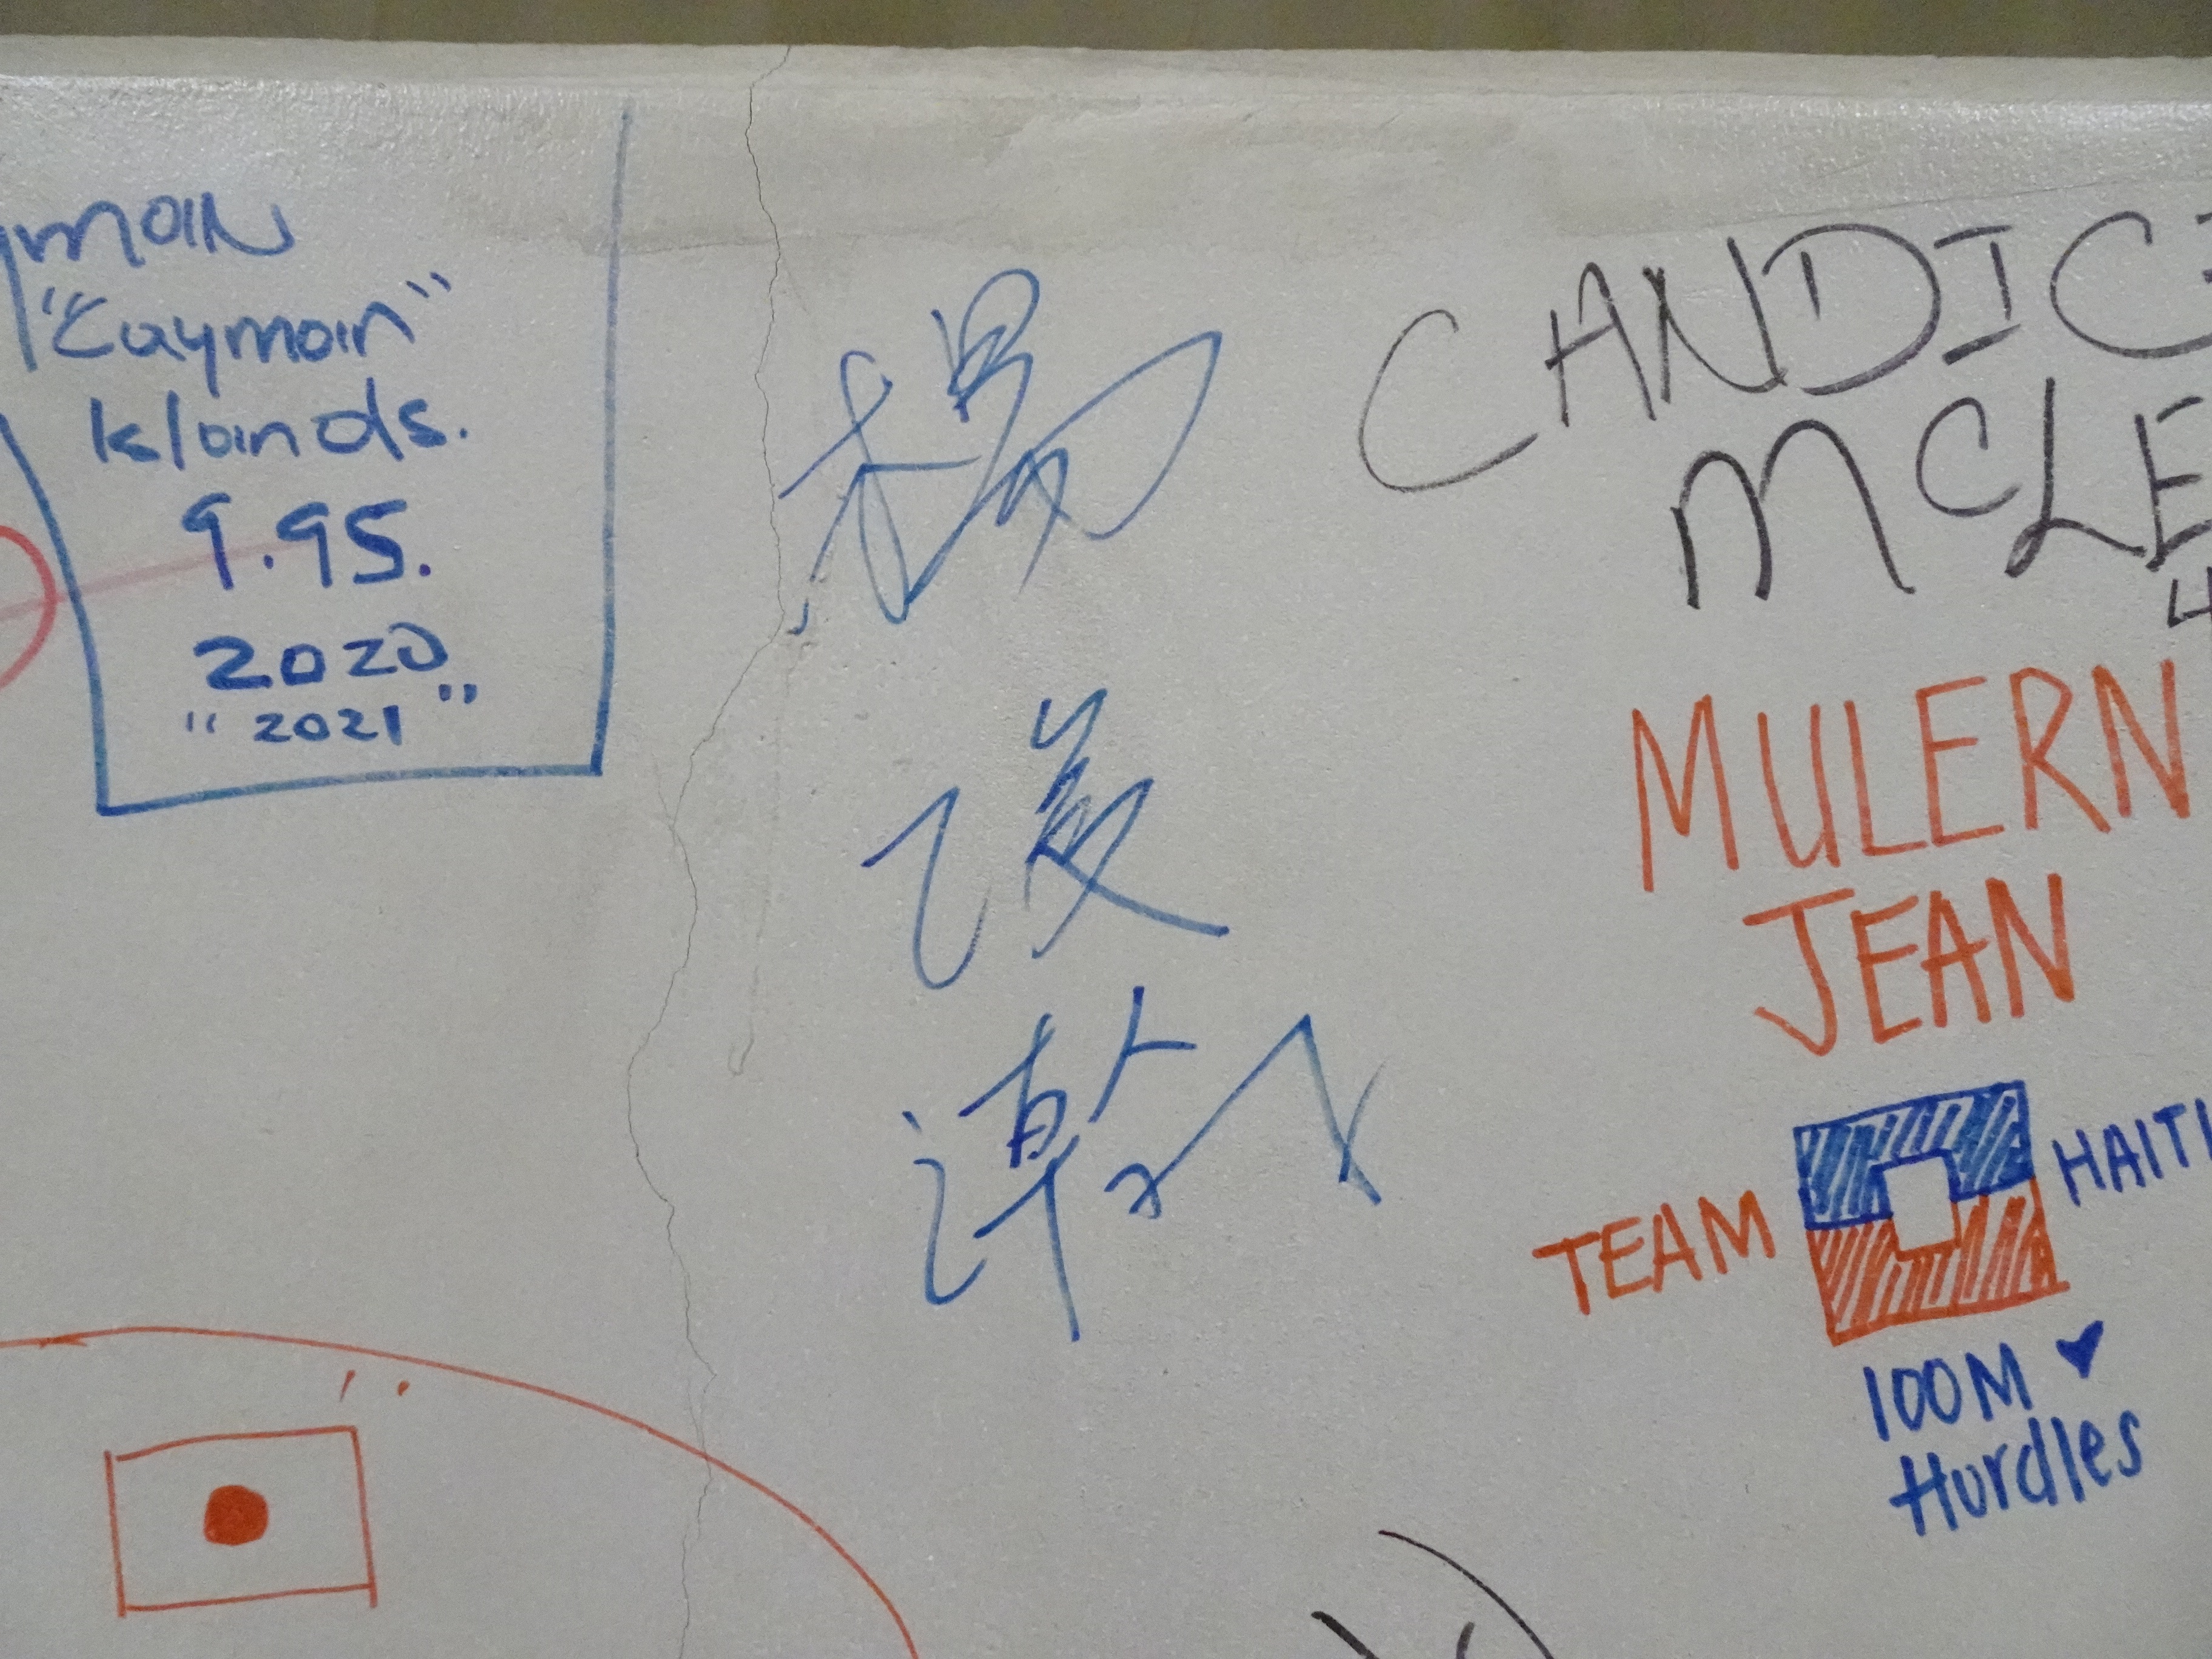 yman
"Cayman"
Islands.
9.95.
2020
"2021"
楊
俊
瀚
CANDIC
MCLE
4
MULERN
JEAN
TEAM HAITI
100M
Hurdles